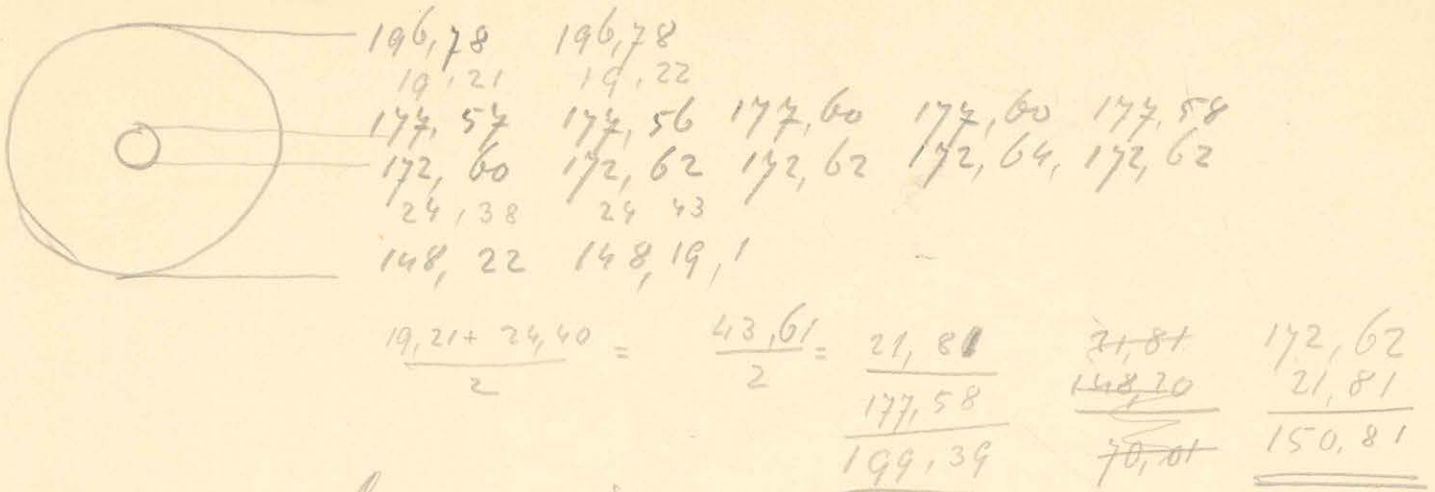 196,78 196,78
19,21 19,22
177,57 177,56 177,60 177,60 177,58
172,60 172,62 172,62 172,64, 172,62
24,38 24 43
148,22 148,19,1
19,21 + 24,40 = 43,61 = 21,81 21,81 172,62
2 2 177,58 148,20 21,81
199,39 70,01 150,81